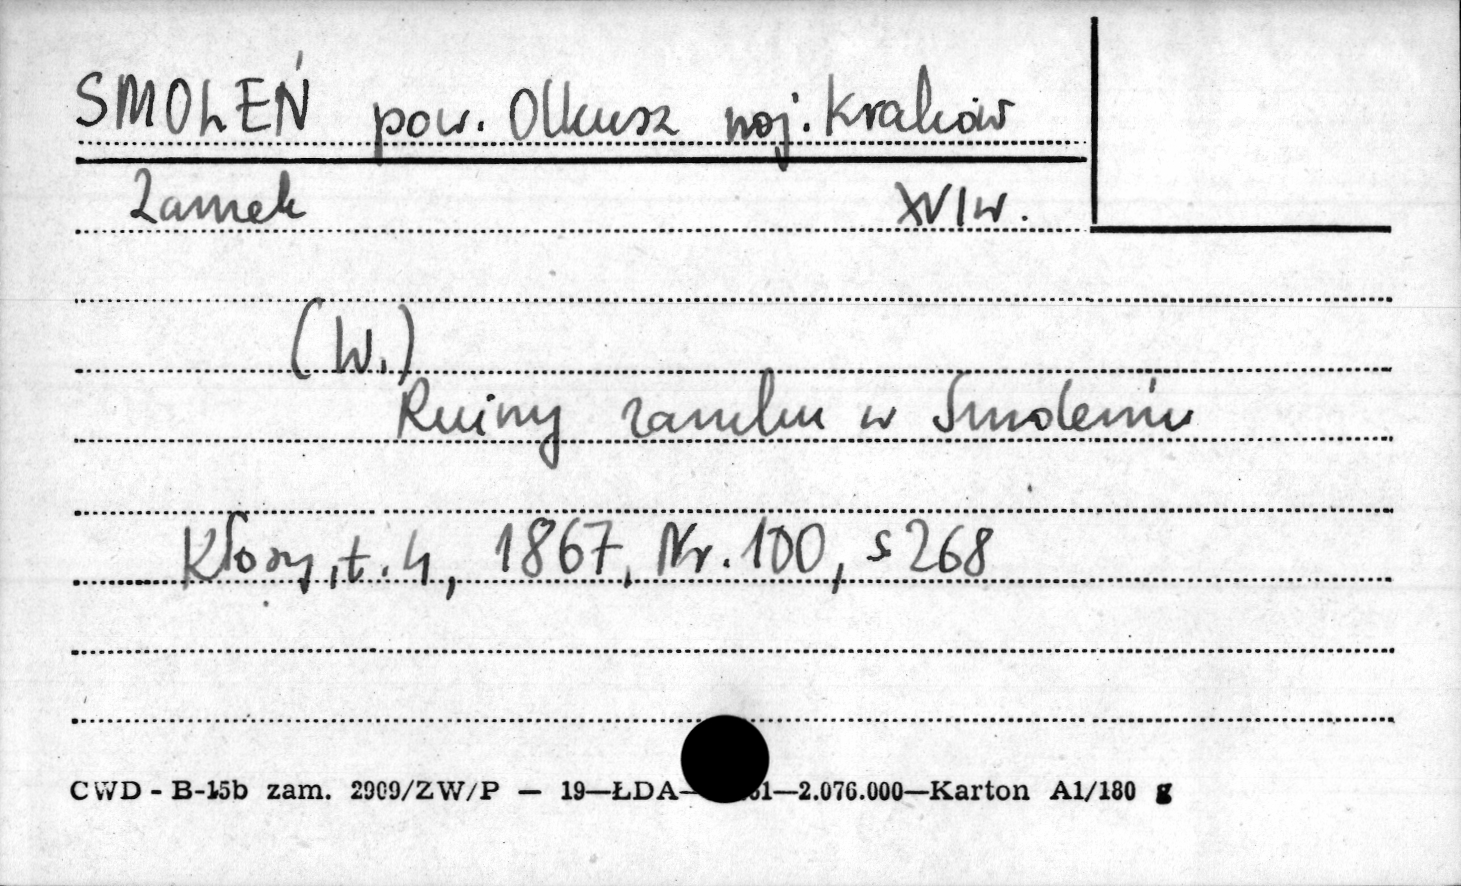 SMOLEŃ pow. Olkusz woj. Kraków
Zamek XVI w.
(W.)
Ruiny zamku w Smoleniu
Kłosy, t. 4, 1867, Nr. 100, s 268
CWD - B-15b zam. 2909/ZW/P — 19—ŁDA— 61—2.076.000—Karton A1/180 g